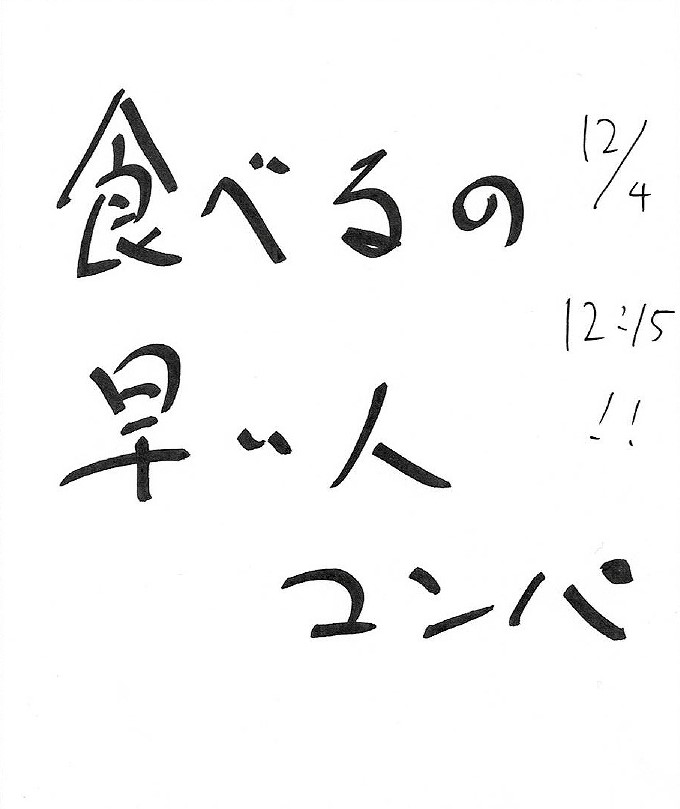 食べるの
早い人
コンパ
12/4
12:15
!!